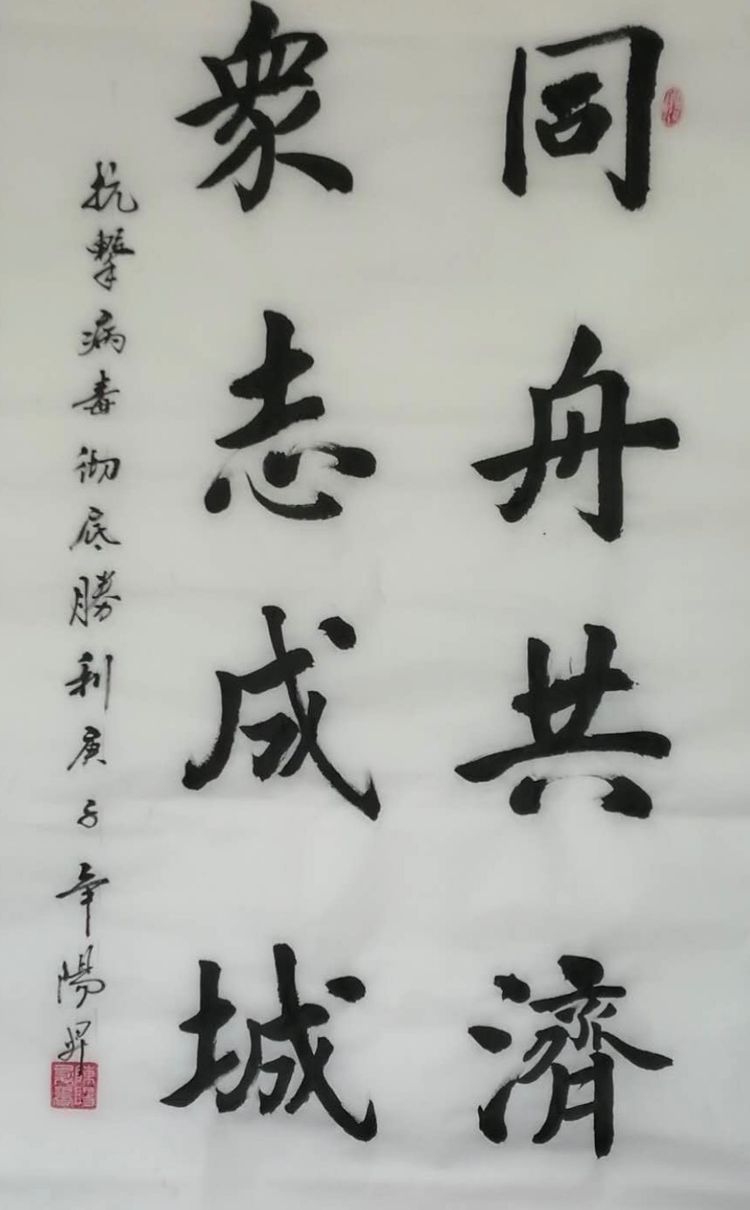 同舟共濟
衆志成城
抗擊病毒彻底勝利庚子年陽昇